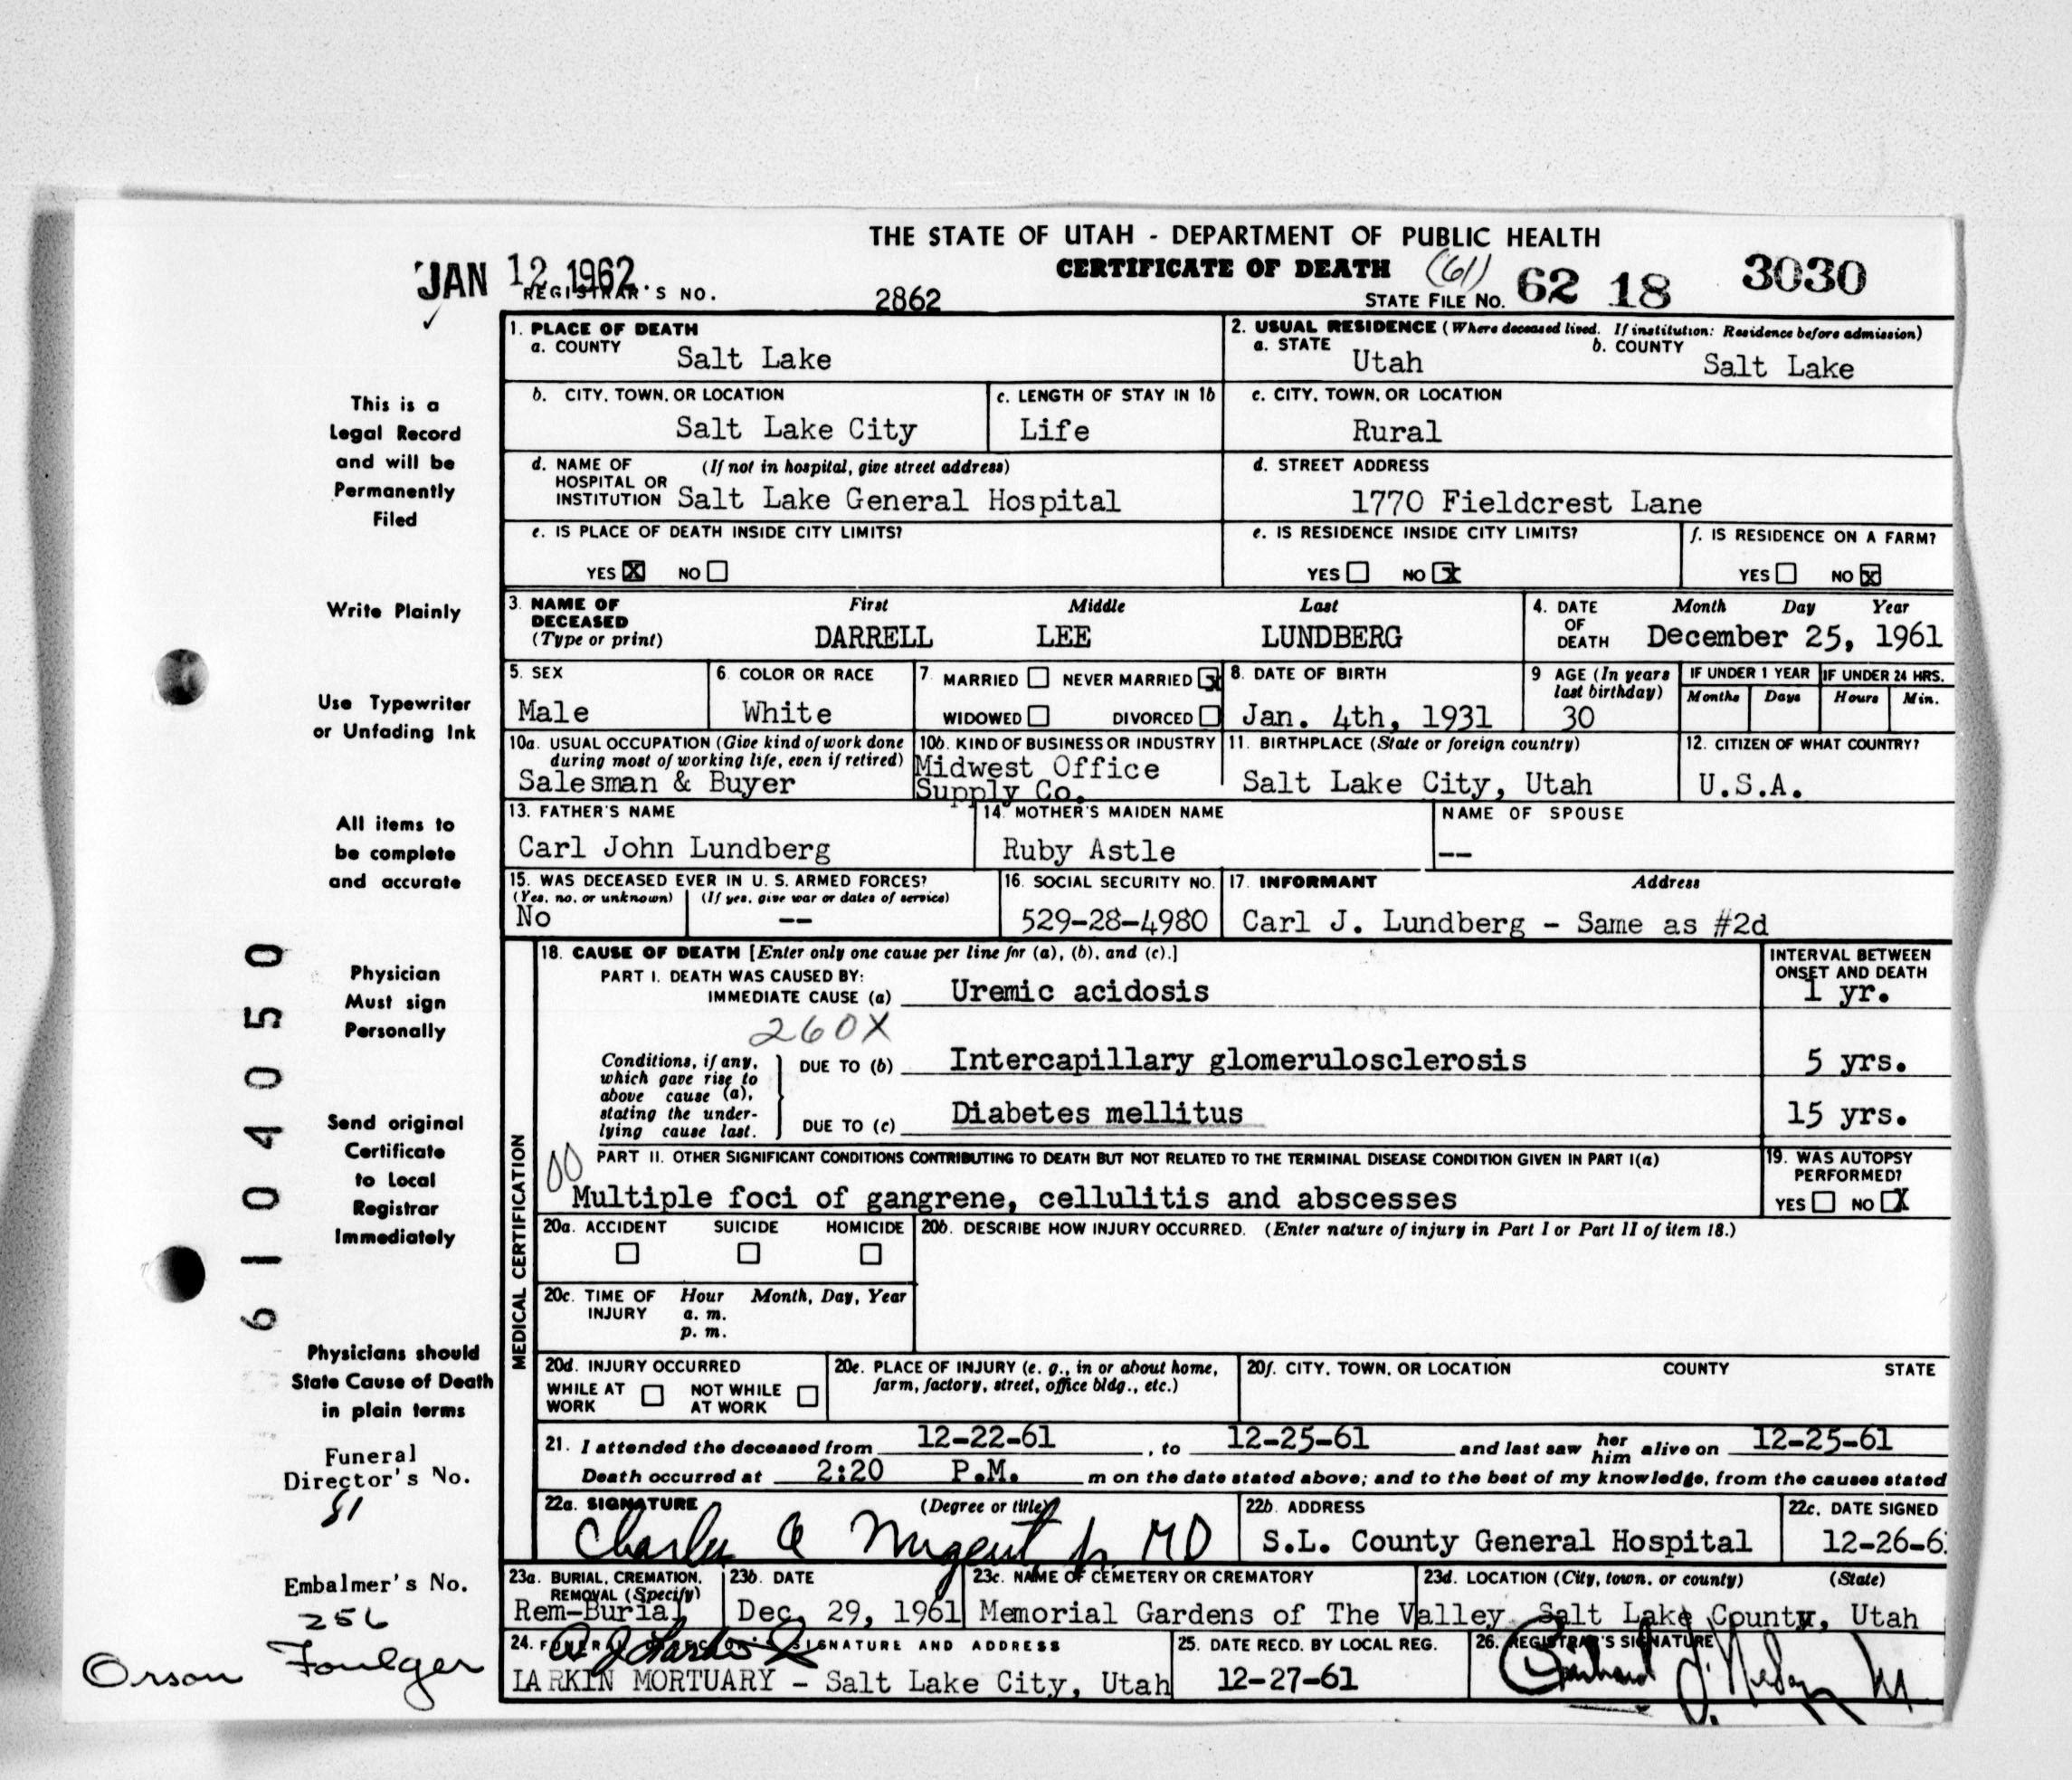 THE STATE OF UTAH - DEPARTMENT OF PUBLIC HEALTH
JAN 12 1962. CERTIFICATE OF DEATH (61)
REGISTRAR'S NO. 2862 STATE FILE NO. 62 18 3030
✓
1. PLACE OF DEATH
a. COUNTY Salt Lake
2. USUAL RESIDENCE (Where deceased lived. If institution: Residence before admission)
a. STATE Utah b. COUNTY Salt Lake
b. CITY, TOWN, OR LOCATION Salt Lake City
c. LENGTH OF STAY IN 1b Life
c. CITY, TOWN, OR LOCATION Rural
d. NAME OF HOSPITAL OR INSTITUTION (If not in hospital, give street address)
Salt Lake General Hospital
d. STREET ADDRESS
1770 Fieldcrest Lane
e. IS PLACE OF DEATH INSIDE CITY LIMITS?
YES X NO
e. IS RESIDENCE INSIDE CITY LIMITS?
YES NO X
f. IS RESIDENCE ON A FARM?
YES NO X
3. NAME OF DECEASED (Type or print)
First Middle Last
DARRELL LEE LUNDBERG
4. DATE OF DEATH Month Day Year
December 25, 1961
5. SEX
Male
6. COLOR OR RACE
White
7. MARRIED NEVER MARRIED X
WIDOWED DIVORCED
8. DATE OF BIRTH
Jan. 4th, 1931
9 AGE (In years last birthday)
30
IF UNDER 1 YEAR
Months Days
IF UNDER 24 HRS.
Hours Min.
10a. USUAL OCCUPATION (Give kind of work done during most of working life, even if retired)
Salesman & Buyer
10b. KIND OF BUSINESS OR INDUSTRY
Midwest Office
Supply Co.
11. BIRTHPLACE (State or foreign country)
Salt Lake City, Utah
12. CITIZEN OF WHAT COUNTRY?
U.S.A.
13. FATHER'S NAME
Carl John Lundberg
14. MOTHER'S MAIDEN NAME
Ruby Astle
NAME OF SPOUSE
--
15. WAS DECEASED EVER IN U. S. ARMED FORCES?
(Yes, no, or unknown) (If yes, give war or dates of service)
No --
16. SOCIAL SECURITY NO.
529-28-4980
17. INFORMANT Address
Carl J. Lundberg - Same as #2d
MEDICAL CERTIFICATION
18. CAUSE OF DEATH [Enter only one cause per line for (a), (b), and (c).]
PART I. DEATH WAS CAUSED BY:
IMMEDIATE CAUSE (a) Uremic acidosis
INTERVAL BETWEEN ONSET AND DEATH
1 yr.
260X
Conditions, if any, which gave rise to above cause (a), stating the underlying cause last.
DUE TO (b) Intercapillary glomerulosclerosis 5 yrs.
DUE TO (c) Diabetes mellitus 15 yrs.
00
PART II. OTHER SIGNIFICANT CONDITIONS CONTRIBUTING TO DEATH BUT NOT RELATED TO THE TERMINAL DISEASE CONDITION GIVEN IN PART I(a)
Multiple foci of gangrene, cellulitis and abscesses
19. WAS AUTOPSY PERFORMED?
YES NO X
20a. ACCIDENT SUICIDE HOMICIDE
20b. DESCRIBE HOW INJURY OCCURRED. (Enter nature of injury in Part I or Part II of item 18.)
20c. TIME OF INJURY Hour Month, Day, Year
a. m.
p. m.
20d. INJURY OCCURRED
WHILE AT WORK NOT WHILE AT WORK
20e. PLACE OF INJURY (e. g., in or about home, farm, factory, street, office bldg., etc.)
20f. CITY, TOWN, OR LOCATION COUNTY STATE
21. I attended the deceased from 12-22-61, to 12-25-61 and last saw her him alive on 12-25-61
Death occurred at 2:20 P.M. m on the date stated above; and to the best of my knowledge, from the causes stated
22a. SIGNATURE (Degree or title)
Charles A Nugent, Jr. MD
22b. ADDRESS
S.L. County General Hospital
22c. DATE SIGNED
12-26-6
23a. BURIAL, CREMATION, REMOVAL (Specify)
Rem-Burial
23b. DATE
Dec. 29, 1961
23c. NAME OF CEMETERY OR CREMATORY
Memorial Gardens of The Valley
23d. LOCATION (City, town, or county) (State)
Salt Lake County, Utah
24. FUNERAL DIRECTOR'S SIGNATURE AND ADDRESS
LARKIN MORTUARY - Salt Lake City, Utah
25. DATE RECD. BY LOCAL REG.
12-27-61
26. REGISTRAR'S SIGNATURE
This is a
Legal Record
and will be
Permanently
Filed
Write Plainly
Use Typewriter
or Unfading Ink
All items to
be complete
and accurate
Physician
Must sign
Personally
Send original
Certificate
to Local
Registrar
Immediately
Physicians should
State Cause of Death
in plain terms
Funeral
Director's No.
51
Embalmer's No.
256
Orson Foulger
6104050